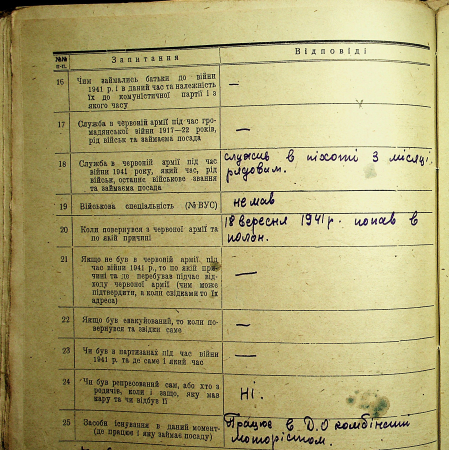 №№ п-п.
Запитання
Відповіді
16
Чим займались батьки до війни
1941 р. і в даний час та належність
їх до комуністичної партії і з
якого часу
—
17
Служба в червоній армії під час гро-
мадянської війни 1917—22 років,
рід військ та займаєма посада
—
18
Служба в червоній армії під час
війни 1941 року, який час, рід
військ, останнє військове звання
та займаєма посада
служив в піхоті 3 місяці
рядовим.
19
Військова спеціальність (№ ВУС)
немав
20
Коли повернувся з червоної армії та
по якій причині
18 вересня 1941 р. попав в
полон.
21
Якщо не був в червоній армії під
час війни 1941 р., то по якій при-
чині та де перебував підчас від-
ходу червоної армії (чим може
підтвердити, а коли свідками то їх
адреса)
—
22
Якщо був евакуйований, то коли по-
вернувся та звідки саме
—
23
Чи був в партизанах під час війни
1941 р. та де саме і який час
—
24
Чи був репресований сам, або хто з
родичів, коли і защо, яку мав
кару та чи відбув її
Ні.
25
Засоби існування в даний момент
(де працює і яку займає посаду)
Працює в Д.О комбінаті
мотористом.